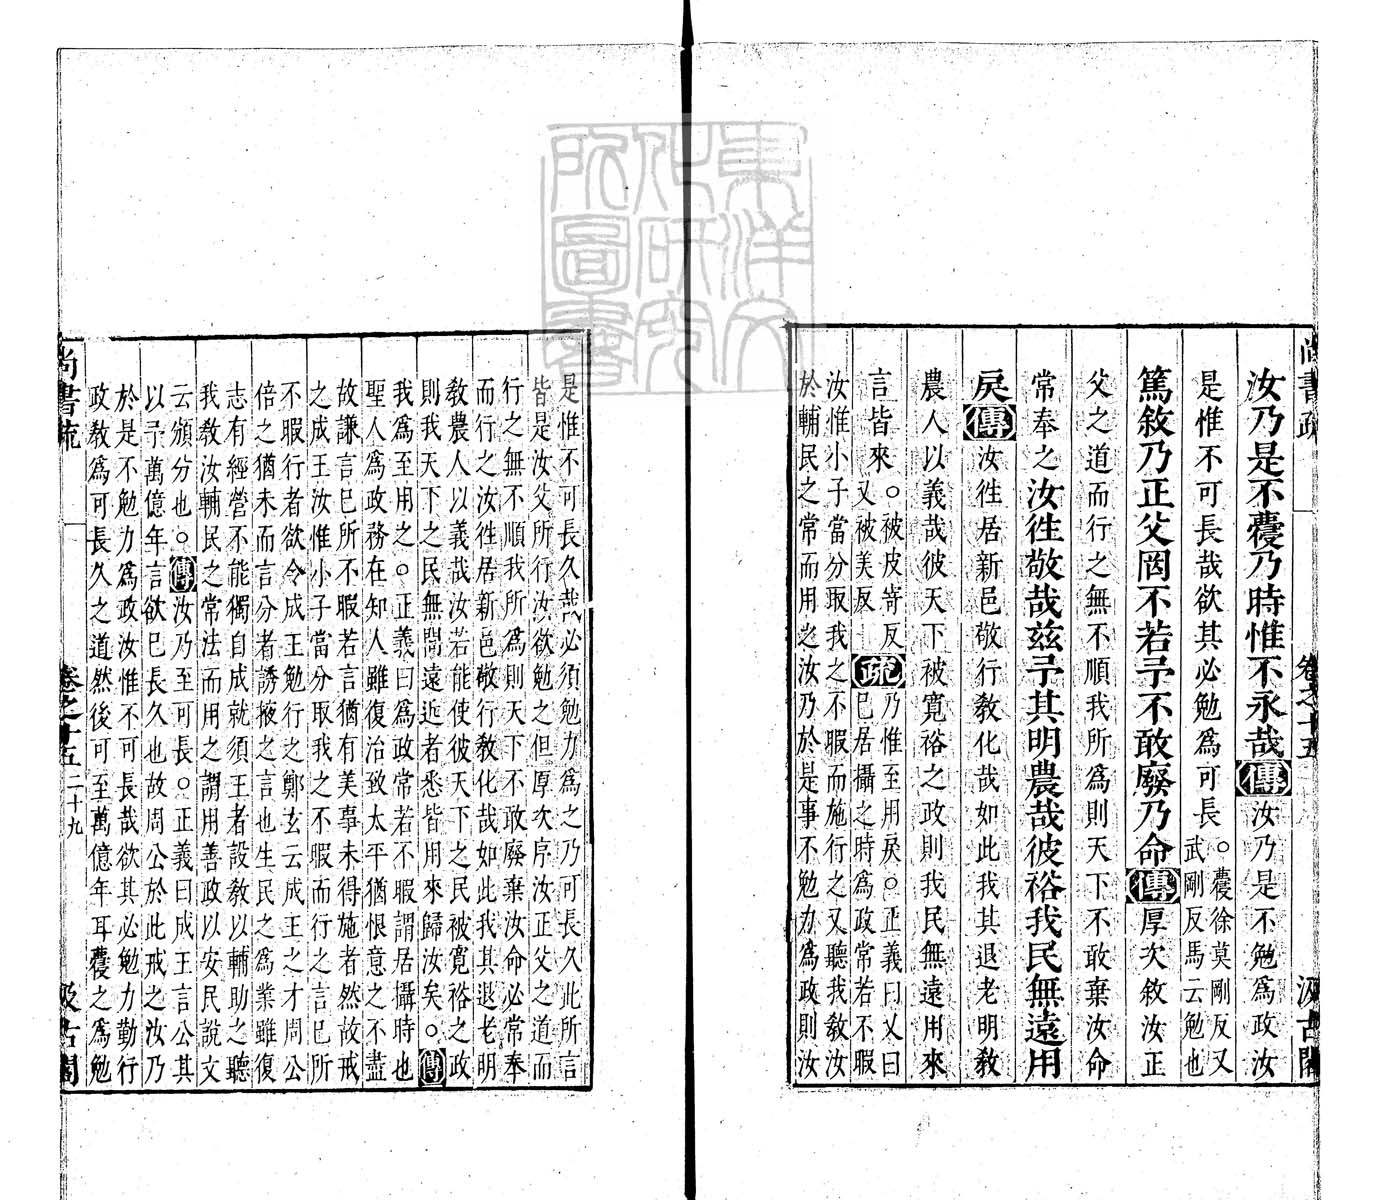 汝乃是不蘉乃時惟不永哉傳汝乃是不勉爲政汝
是惟不可長哉欲其必勉爲可長。蘉徐莫剛反又
武剛反馬云勉也
篤敘乃正父罔不若予不敢廢乃命傳厚次敘汝正
父之道而行之無不順我所爲則天下不敢棄汝命
常奉之汝徃敬哉兹予其明農哉彼裕我民無遠用
戾傳汝徃居新邑敬行敎化哉如此我其退老明敎
農人以義哉彼天下被寬裕之政則我民無遠用來
言皆來。被皮寄反
又被美反疏乃惟至用戾。正義曰又曰
已居攝之時爲政常若不暇
汝惟小子當分取我之不暇而施行之又聽我敎汝
於輔民之常而用之汝乃於是事不勉力爲政則汝
尚書疏
卷之十五
汲古閣
是惟不可長久哉必須勉力爲之乃可長久此所言
皆是汝父所行汝欲勉之但厚次序汝正父之道而
行之無不順我所爲則天下不敢廢棄汝命必常奉
而行之汝徃居新邑敬行敎化哉如此我其退老明
敎農人以義哉汝若能使彼天下之民被寬裕之政
則我天下之民無問遠近者悉皆用來歸汝矣。傳
我爲至用之。正義曰爲政常若不暇謂居攝時也
聖人爲政務在知人雖復治致太平猶恨意之不盡
故謙言已所不暇若言猶有美事未得施者然故戒
之成王汝惟小子當分取我之不暇而行之言已所
不暇行者欲令成王勉行之鄭玄云成王之才周公
倍之猶未而言分者誘掖之言也生民之爲業雖復
志有經營不能獨自成就須王者設敎以輔助之聽
我敎汝輔民之常法而用之謂用善政以安民說文
云頒分也。傳汝乃至可長。正義曰成王言公其
以予萬億年言欲已長久也故周公於此戒之汝乃
於是不勉力爲政汝惟不可長哉欲其必勉力勤行
政敎爲可長久之道然後可至萬億年耳蘉之爲勉
尚書疏
卷之十五
二十九
汲古閣
東洋文
化研究
所圖書